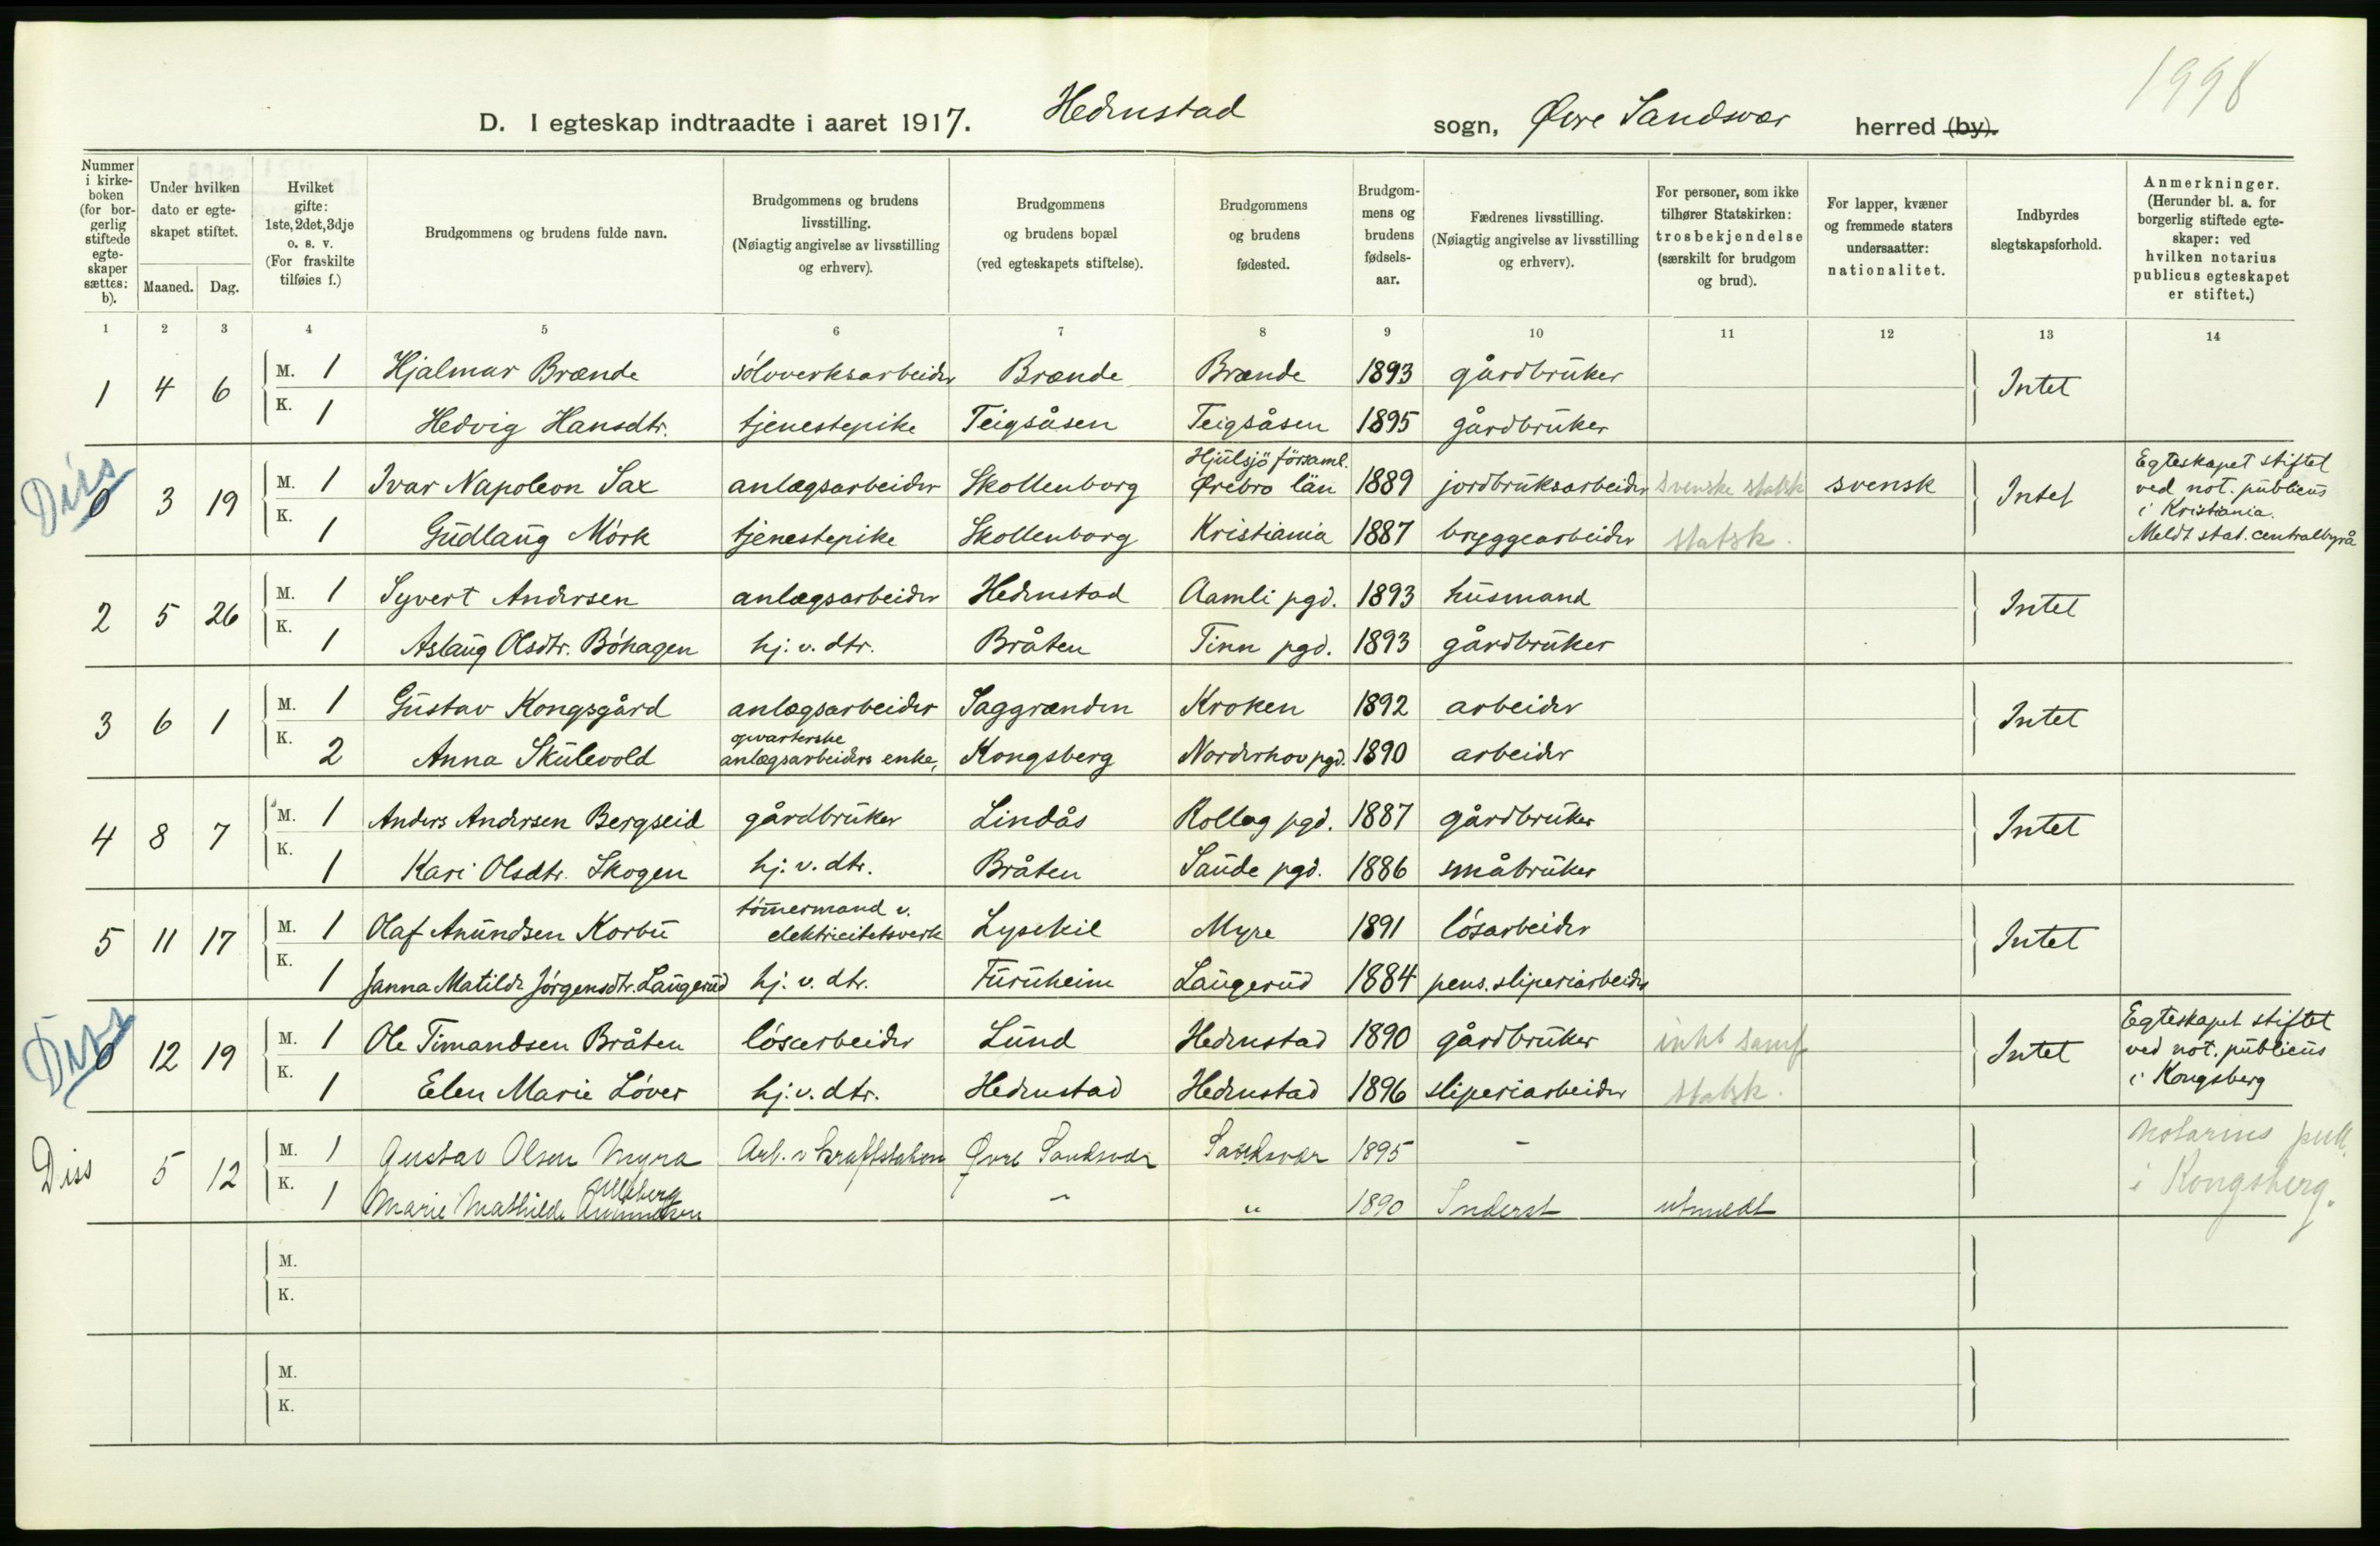 1998
D. I egteskap indtraadte i aaret 1917. Hedenstad sogn, Øvre Sandsvær herred (by).
Nummer i kirkeboken (for borgerlig stiftede egteskaper sættes: b). | Under hvilken dato er egteskapet stiftet. Maaned. Dag. | Hvilket gifte: 1ste, 2det, 3dje o. s. v. (For fraskilte tilføies f.) | Brudgommens og brudens fulde navn. | Brudgommens og brudens livsstilling. (Nøiagtig angivelse av livsstilling og erhverv). | Brudgommens og brudens bopæl (ved egteskapets stiftelse). | Brudgommens og brudens fødested. | Brudgommens og brudens fødselsaar. | Fædrenes livsstilling. (Nøiagtig angivelse av livsstilling og erhverv). | For personer, som ikke tilhører Statskirken: trosbekjendelse (særskilt for brudgom og brud). | For lapper, kvæner og fremmede staters undersaatter: nationalitet. | Indbyrdes slegtskapsforhold. | Anmerkninger. (Herunder bl. a. for borgerlig stiftede egteskaper: ved hvilken notarius publicus egteskapet er stiftet.)
1 2 3 4 5 6 7 8 9 10 11 12 13 14
1 4 6 M. 1 Hjalmar Brænde sölvverksarbeider Brænde Brænde 1893 gårdbruker Intet
K. 1 Hedvig Hansdtr. tjenestepike Teigsåsen Teigsåsen 1895 gårdbruker
Diss 0 3 19 M. 1 Ivar Napoleon Sax anlægsarbeider Skollenborg Hjulsjö församl. Örebro län 1889 jordbruksarbeider svenske statsk svensk Intet Egteskapet stiftet ved not. publicus i Kristiania.
K. 1 Gudlaug Mörk tjenestepike Skollenborg Kristiania 1887 bryggearbeider statsk. Meldt stat. centralbyrå
2 5 26 M. 1 Syvert Andersen anlægsarbeider Hedenstad Aamli pgd. 1893 husmand Intet
K. 1 Aslaug Olsdtr. Böhagen hj. v. dtr. Bråten Tinn pgd. 1893 gårdbruker
3 6 1 M. 1 Gustav Kongsgård anlægsarbeider Saggrenden Kroken 1892 arbeider Intet
K. 2 Anna Skulevold opvarterske anlægsarbeiders enke, Kongsberg Norderhov pgd. 1890 arbeider
4 8 7 M. 1 Anders Andersen Bergseid gårdbruker Lindås Rollag pgd. 1887 gårdbruker Intet
K. 1 Kari Olsdtr. Skogen hj. v. dtr. Bråten Saude pgd. 1886 småbruker
5 11 17 M. 1 Olaf Anundsen Korbu tömmermand v. elektricitetsverk Lysekil Myre 1891 lösarbeider Intet
K. 1 Janna Matilde Jörgensdtr. Laugerud hj. v. dtr. Furuheim Laugerud 1884 pens. sliperiarbeider
Diss 0 12 19 M. 1 Ole Timandsen Bråten lösarbeider Lund Hedenstad 1890 gårdbruker intet samf Intet Egteskapet stiftet ved not. publicus i Kongsberg
K. 1 Elen Marie Löver hj. v. dtr. Hedenstad Hedenstad 1896 sliperiarbeider statsk.
Diss 5 12 M. 1 Gustav Olsen Myra Arb. v kraftstation Øvre Sandsvær Sandsvær 1895 - Notarius publ. i Kongsberg.
K. 1 Marie Mathilde Ulleberg - " 1890 Inderst utmeldt
M.
K.
M.
K.